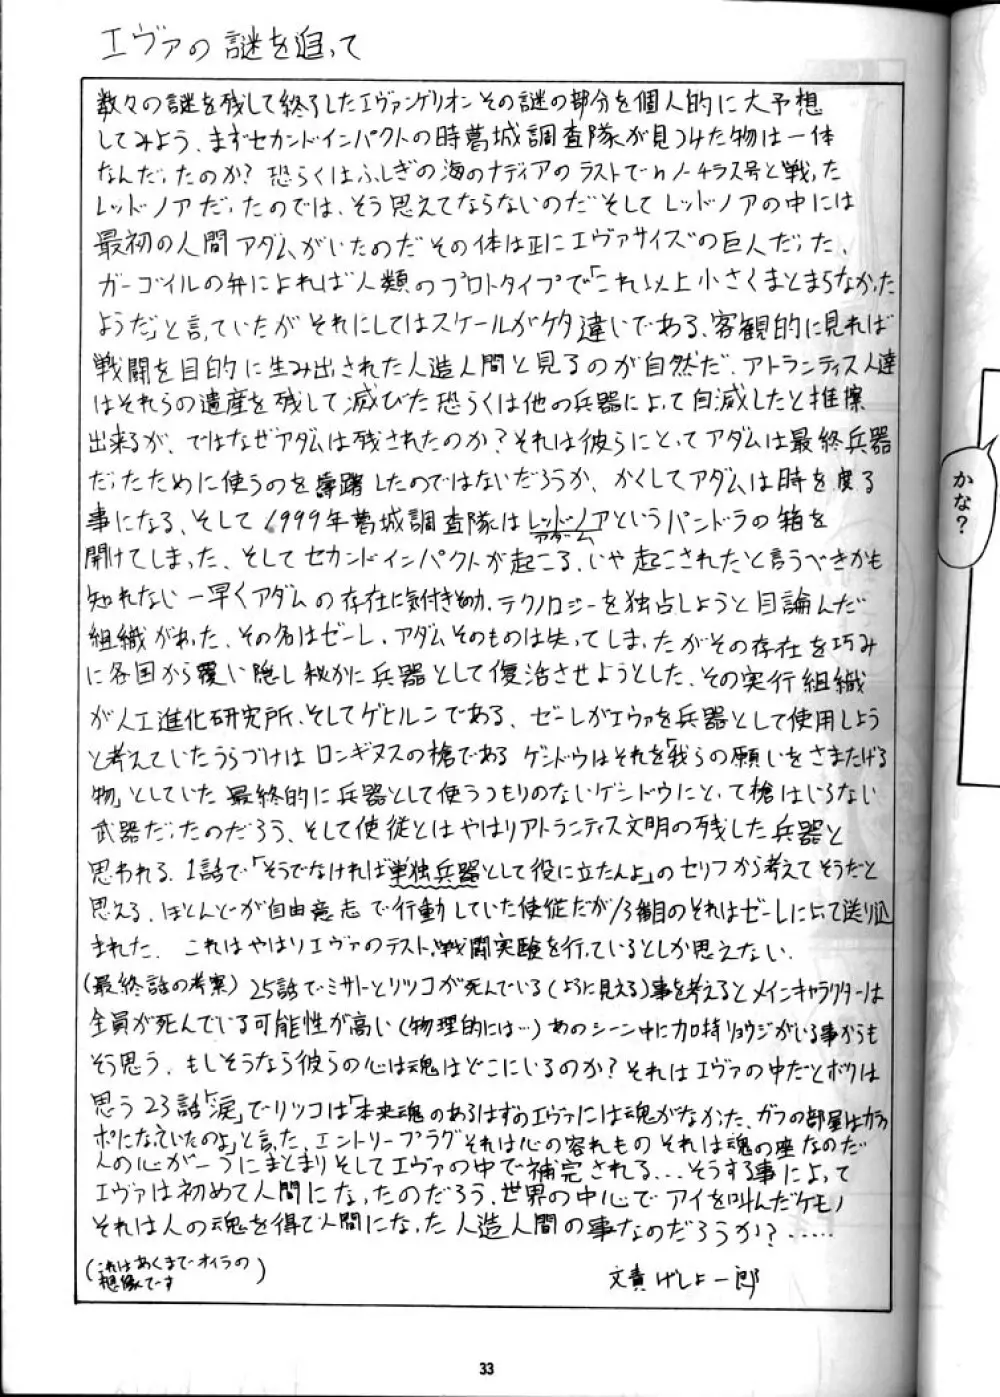 エヴァの謎を追って
数々の謎を残して終了したエヴァンゲリオンその謎の部分を個人的に大予想
してみよう、まずセカンドインパクトの時葛城調査隊が見つけた物は一体
なんだったのか?恐らくはふしぎの海のナディアのラストでnノーチラス号と戦った
レッドノアだったのでは、そう思えてならないのだそしてレッドノアの中には
最初の人間アダムがいたのだその体は正にエヴァサイズの巨人だった、
ガーゴイルの弁によれば人類のプロトタイプで「これ以上小さくまとまらなかった
ようだ」と言っていたがそれにしてはスケールがケタ違いである、客観的に見れば
戦闘を目的に生み出された人造人間と見るのが自然だ、アトランティス人達
はそれらの遺産を残して滅びた恐らくは他の兵器によって自滅したと推擦
出来るが、ではなぜアダムは残されたのか?それは彼らにとってアダムは最終兵器
だったために使うのを躊躇したのではないだろうか、かくしてアダムは時を度る
事になる、そして1999年葛城調査隊はレッドノアというパンドラの箱を
アダム
開けてしまった、そしてセカンドインパクトが起こる、いや起こされたと言うべきかも
知れない一早くアダムの存在に気付き始め、テクノロジーを独占しようと目論んだ
組織があった、その名はゼーレ、アダムそのものは失ってしまったがその存在を巧み
に各国から覆い隠し秘かに兵器として復活させようとした、その実行組織
が人工進化研究所、そしてゲヒルンである、ゼーレがエヴァを兵器として使用しよう
と考えていたうらづけはロンギヌスの槍であるゲンドウはそれを「我らの願いをさまたげる
物」としていた最終的に兵器として使うつもりのないゲンドウにとって槍はいらない
武器だったのだろう、そして使徒とはやはりアトランティス文明の残した兵器と
思われる、1話で「そうでなければ単独兵器として役に立たんよ」のセリフから考えてそうだと
思える、ほとんどが自由意志で行動していた使徒だが13番目のそれはゼーレによって送り込
まれた、これはやはりエヴァのテスト、戦闘実験を行っているとしか思えない、
(最終話の考案)25話でミサトとリツコが死んでいる(ように見える)事を考えるとメインキャラクターは
全員が死んでいる可能性が高い(物理的には…)あのシーン中に加持リョウジがいる事からも
そう思う、もしそうなら彼らの心は魂はどこにいるのか?それはエヴァの中だとボクは
思う23話「涙」でリツコは「本来魂のあるはずのエヴァには魂がなかった、ガフの部屋はカラッ
ポになっていたのよ」と言った、エントリープラグそれは心の容れものそれは魂の座なのだ
人の心が一つにまとまりそしてエヴァの中で補完される…そうする事によって
エヴァは初めて人間になったのだろう、世界の中心でアイを叫んだケモノ
それは人の魂を得て人間になった人造人間の事なのだろうか?……
(これはあくまでオイラの
想像です)
文責げしょ一郎
33
かな?